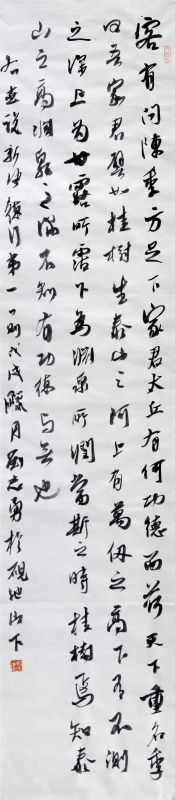 客有問陳季方足下家君大丘有何功德而荷天下重名季
曰吾家君譬如桂樹生泰山之阿上有萬仞之高下有不測
之深上為甘露所霑下為淵泉所潤當斯之時桂樹焉知泰
山之高淵泉之深不知有功德與無也
右世說新語德行第一一則戊戌臘月劉志勇於硯池山下